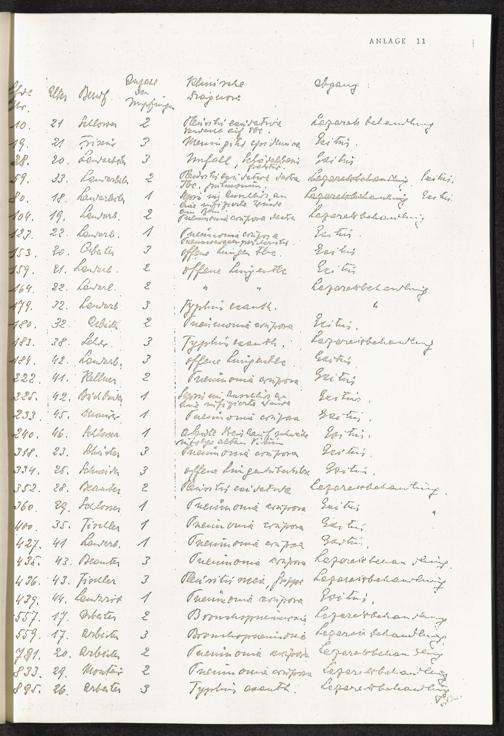 ANLAGE 11
Anzahl Klinische Abgang:
Alter Beruf. der Diagnose
Nr. Impfungen
10. 21 Schlosser 2 Pleuritis exsudativa Lazarettbehandlung
19. 21 Friseur 3 Meningitis epidemica Exitus.
28. 20. Landarbeiter 3 Unfall, Schädelbasis Exitus
59. 33. Landarbeiter 2 Pleuritis exsudativa dextra Lazarettbehandlung Exitus.
Tbc. pulmonum.
80. 18. Landarbeiter 1 Lazarettbehandlung Exitus.
104. 19. Landarb. 2 Pneumonia crouposa dextra Lazarettbehandlung
127. 22. Landarb. 1 Pneumonia crouposa Exitus.
153. 20. Arbeiter 3 offene Lungen Tbc. Exitus
159. 21. Landarb. 2 offene Lungentbc Exitus
164. 22. Landarb. 2 " " Lazarettbehandlung
179. 32. Landarb 3 Typhus exanth. "
180. 32. Arbeiter 2 Pneumonia crouposa Exitus.
183. 38. Lehrer 3 Typhus exanth. Lazarettbehandlung
184. 42. Landarb. 3 offene Lungentbc Exitus
222. 41. Kellner 2 Pneumonia crouposa Exitus
225. 42. 1 Sepsis im Anschluss an Exitus.
eine infizierte Wunde
233. 45. Maurer 1 Pneumonia crouposa Exitus.
240. 46. Schlosser 1 Exitus.
318. 23. 3 Pneumonia crouposa Exitus.
334. 25. Schneider 3 offene Lungentuberkulose Exitus.
352. 28. Beamter 2 Pleuritis exsudativa Lazarettbehandlung.
360. 29. Schlosser 1 Pneumonia crouposa Exitus "
400. 35. Tischler 1 Pneumonia crouposa Exitus.
427. 41 Landarb. 1 Pneumonia crouposa Exitus.
435. 43. Beamter 3 Pneumonia crouposa Lazarettbehandlung.
436. 43. Tischler 3 Pleuritis Lazarettbehandlung
439. 44. Landwirt 1 Pneumonia crouposa Exitus.
557. 17. Arbeiter 2 Bronchopneumonie Lazarettbehandlung
559. 17. Arbeiter 3 Bronchopneumonie Lazarettbehandlung
781. 20. Arbeiter 2 Pneumonia crouposa Lazarettbehandlung
833. 29. Monteur 2 Pneumonia crouposa Lazarettbehandlung
895. 26. Arbeiter 3 Typhus exanth. Lazarettbehandlung